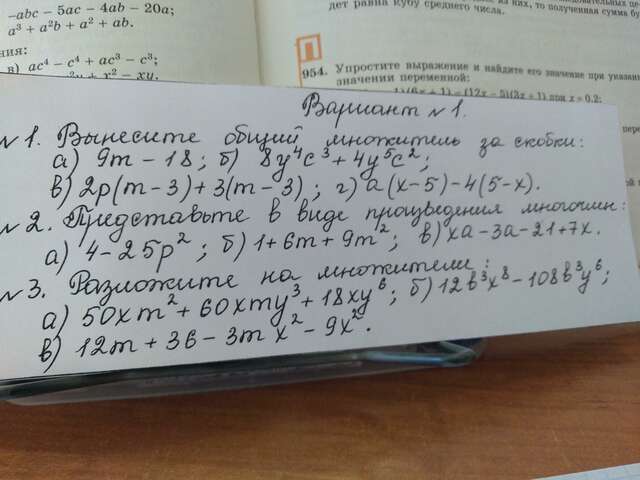 -abc - 5ac - 4ab - 20a;
a³ + a²b + a² + ab.
ния:
в) ac⁴ - c⁴ + ac³ - c³;
+ x² - xy.
дет равна кубу среднего числа.
из них, то полученная сумма
П
954. Упростите выражение и найдите его значение при
значении переменной:
(6x + 1) - (12x - 5)(3x + 1) при x = 0,2;
Вариант №1.
№1. Вынесите общий множитель за скобки:
а) 9m - 18; б) 8y⁴c³ + 4y⁵c²;
в) 2p(m-3) + 3(m-3); г) a(x-5) - 4(5-x).
№2. Представьте в виде произведения многочлен:
а) 4 - 25p²; б) 1 + 6m + 9m²; в) xa - 3a - 21 + 7x.
№3. Разложите на множители:
а) 50xm² + 60xmy³ + 18xy⁶; б) 12b³x⁸ - 108b³y⁶;
в) 12m + 36 - 3mx² - 9x².